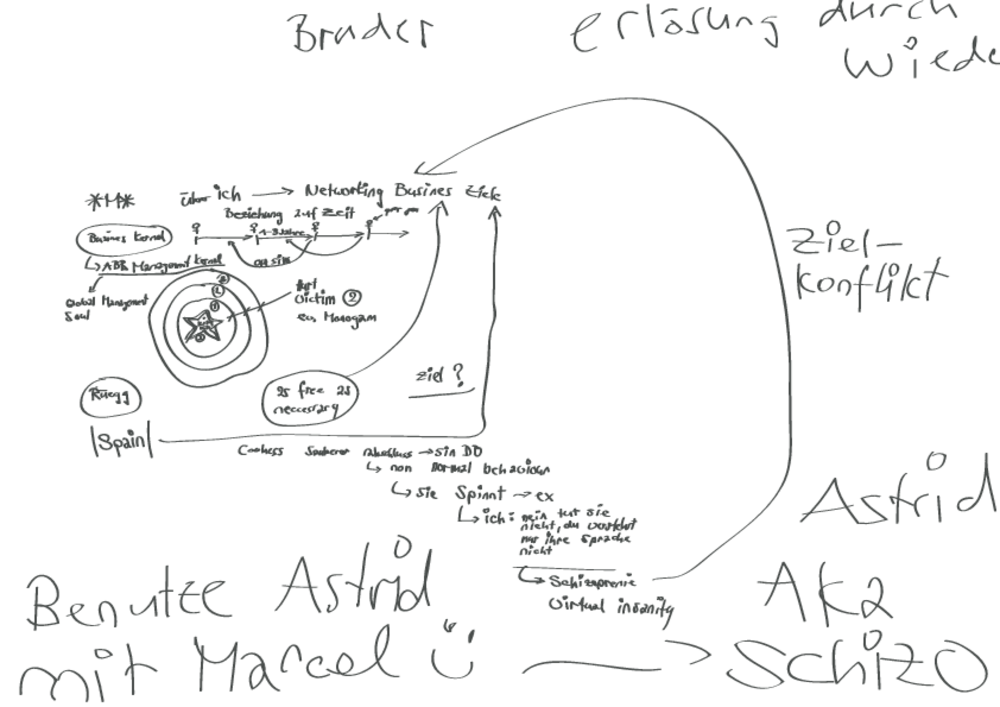 Bruder
erlösung durch
Wiede
*M*
über ich → Networking Busines Ziele
Beziehung auf Zeit
1-3 Jahre
Busines Kernel
↳ ABR Managemnt Kernel
Global Management
Soul
Victim ②
ex. Monogam
Ziel-
konflikt
Rüegg
as free as
neccessary
ziel ?
|Spain|
→ sin DD
↳ non normal behaviour
↳ sie Spinnt → ex
↳ ich: nein tut sie
nicht, du verstehst
nur ihre Sprache
nicht
↳ Schizoprenie
Virtual insanity
Astrid
AKA
Schizo
Benutze Astrid
mit Marcel ü →